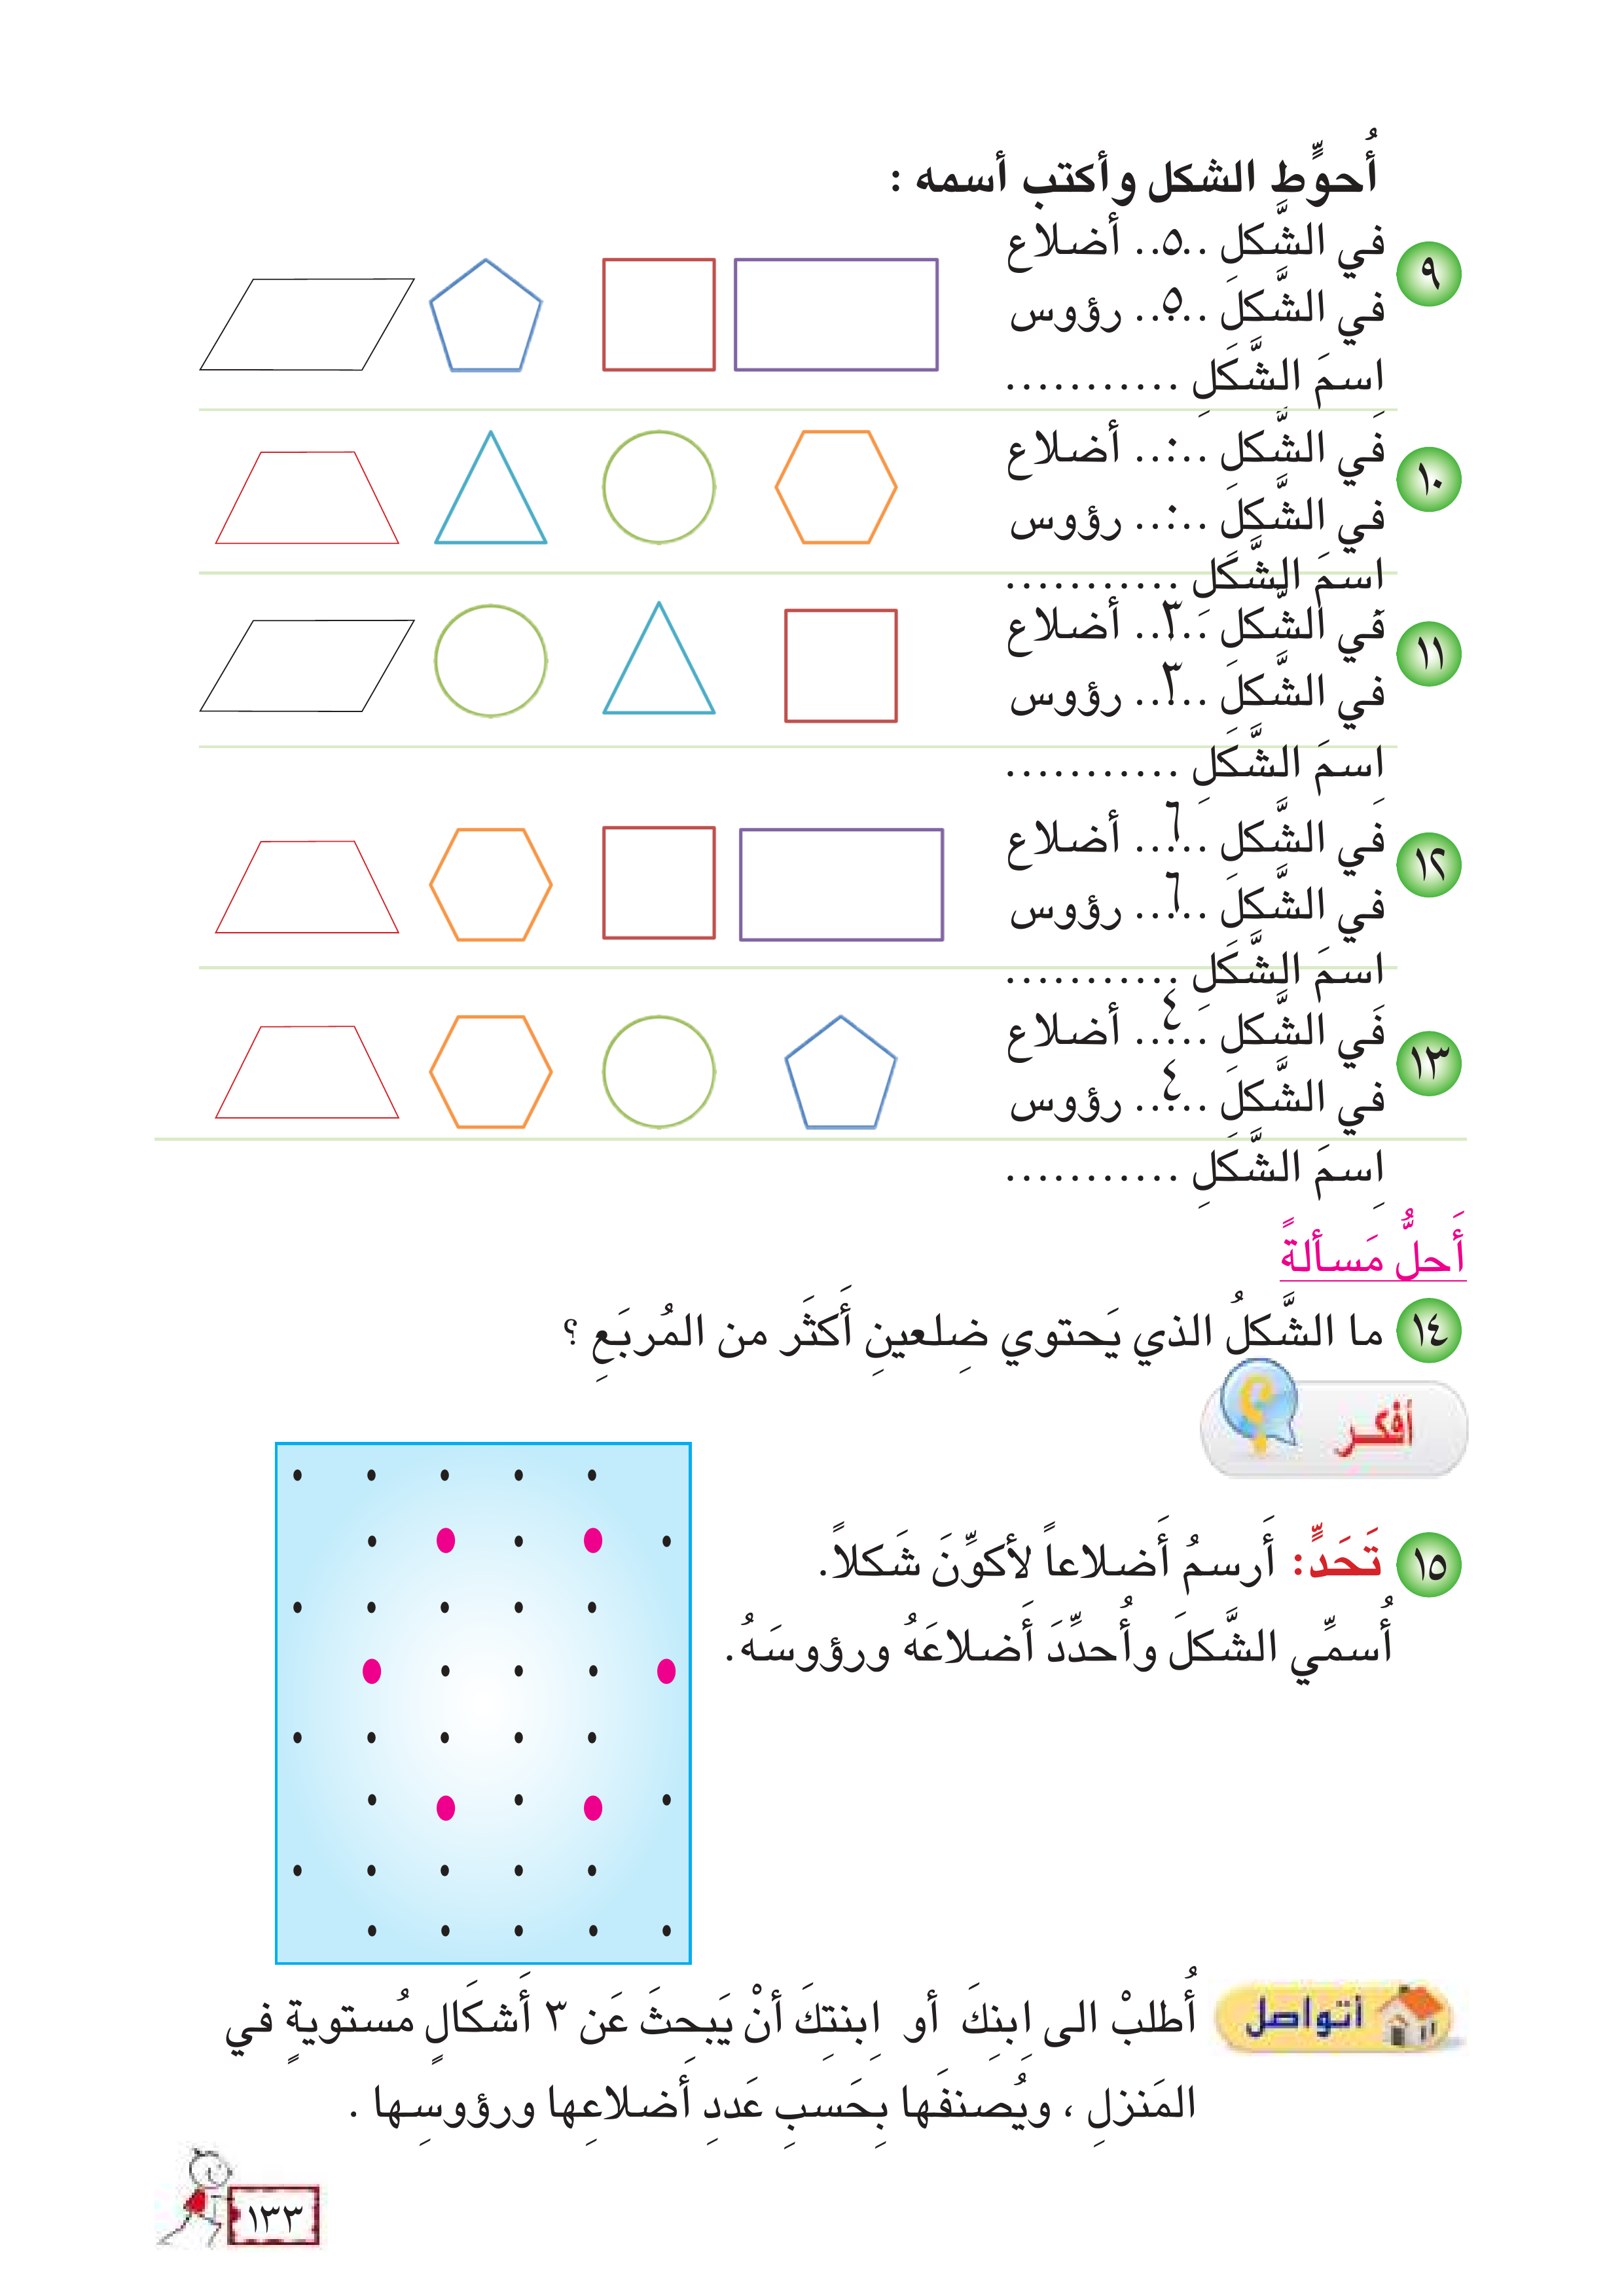 أُحوِّط الشكل وأكتب أسمه :
٩ في الشَّكلِ ..٥.. أضلاع
في الشَّكلَ ..٥.. رؤوس
اِسمَ الشَّكَلِ ...........
١٠ في الشَّكلِ ..٠.. أضلاع
في الشَّكلَ ..٠.. رؤوس
اِسمَ الشَّكَلِ ...........
١١ في الشَّكلِ ..٣.. أضلاع
في الشَّكلَ ..٣.. رؤوس
اِسمَ الشَّكَلِ ...........
١٢ في الشَّكلِ ..٦.. أضلاع
في الشَّكلَ ..٦.. رؤوس
اِسمَ الشَّكَلِ ...........
١٣ في الشَّكلِ ..٤.. أضلاع
في الشَّكلَ ..٤.. رؤوس
اِسمَ الشَّكَلِ ...........
أَحلُّ مَسألةً
١٤ ما الشَّكلُ الذي يَحتوي ضِلعينِ أَكثَر من المُربَعِ ؟
أفكر
١٥ تَحَدٍّ: أَرسمُ أَضلاعاً لأكوِّنَ شَكلاً.
أُسمِّي الشَّكلَ وأُحدِّدَ أَضلاعَهُ ورؤوسَهُ.
أتواصل أُطلبْ الى اِبنِكَ أو اِبنتِكَ أنْ يَبحِثَ عَن ٣ أَشكَالٍ مُستويةٍ في
المَنزلِ ، ويُصنفَها بِحَسبِ عَددِ أَضلاعِها ورؤوسِها .
١٣٣